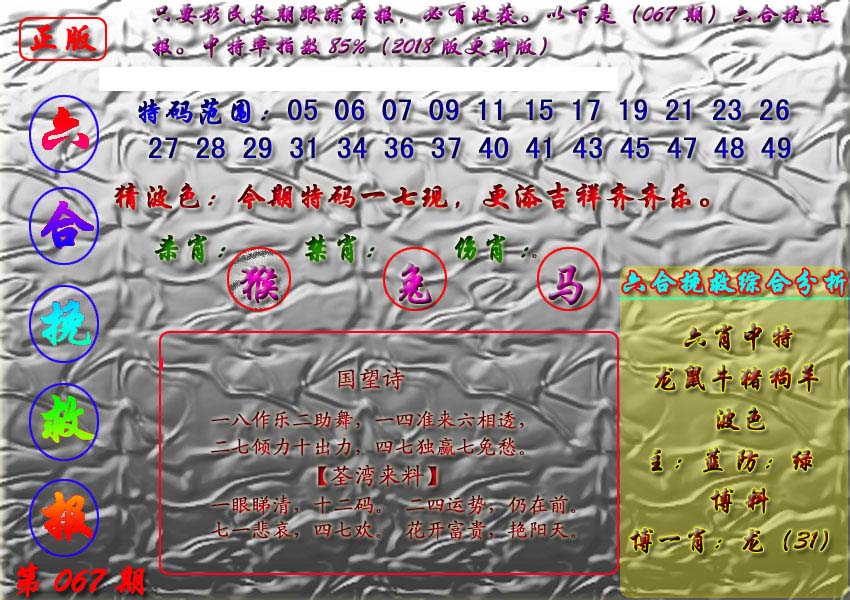 正版
只要彩民长期跟踪本报，必有收获。以下是（067期）六合挽救
报。中特率指数85%（2018版更新版）
六合挽救报
第067期
特码范围：05 06 07 09 11 15 17 19 21 23 26
27 28 29 31 34 36 37 40 41 43 45 47 48 49
猜波色：今期特码一七现，更添吉祥齐齐乐。
杀肖：猴 禁肖：兔 伤肖：马
国望诗
一八作乐二助舞，一四准来六相透，
二七倾力十出力，四七独赢七免愁。
【荃湾来料】
一眼睇清，十二码。 二四运势，仍在前。
七一悲哀，四七欢。 花开富贵，艳阳天。
六合挽救综合分析
六肖中特
龙鼠牛猪狗羊
波色
主：蓝防：绿
博料
博一肖：龙（31）